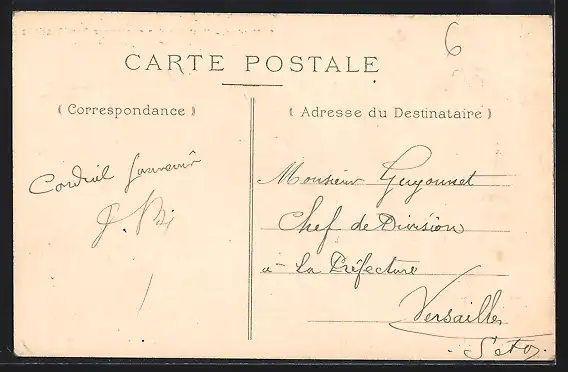 6
CARTE POSTALE
( Correspondance )
( Adresse du Destinataire )
Cordial Souvenir
Monsieur Guyonnet
Chef de Division
à la Préfecture
Versailles
S et O.